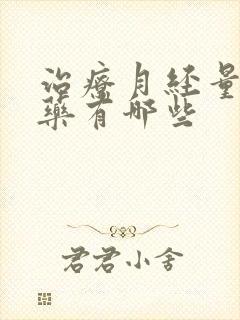 治療月経量
藥有哪些
君君小舍